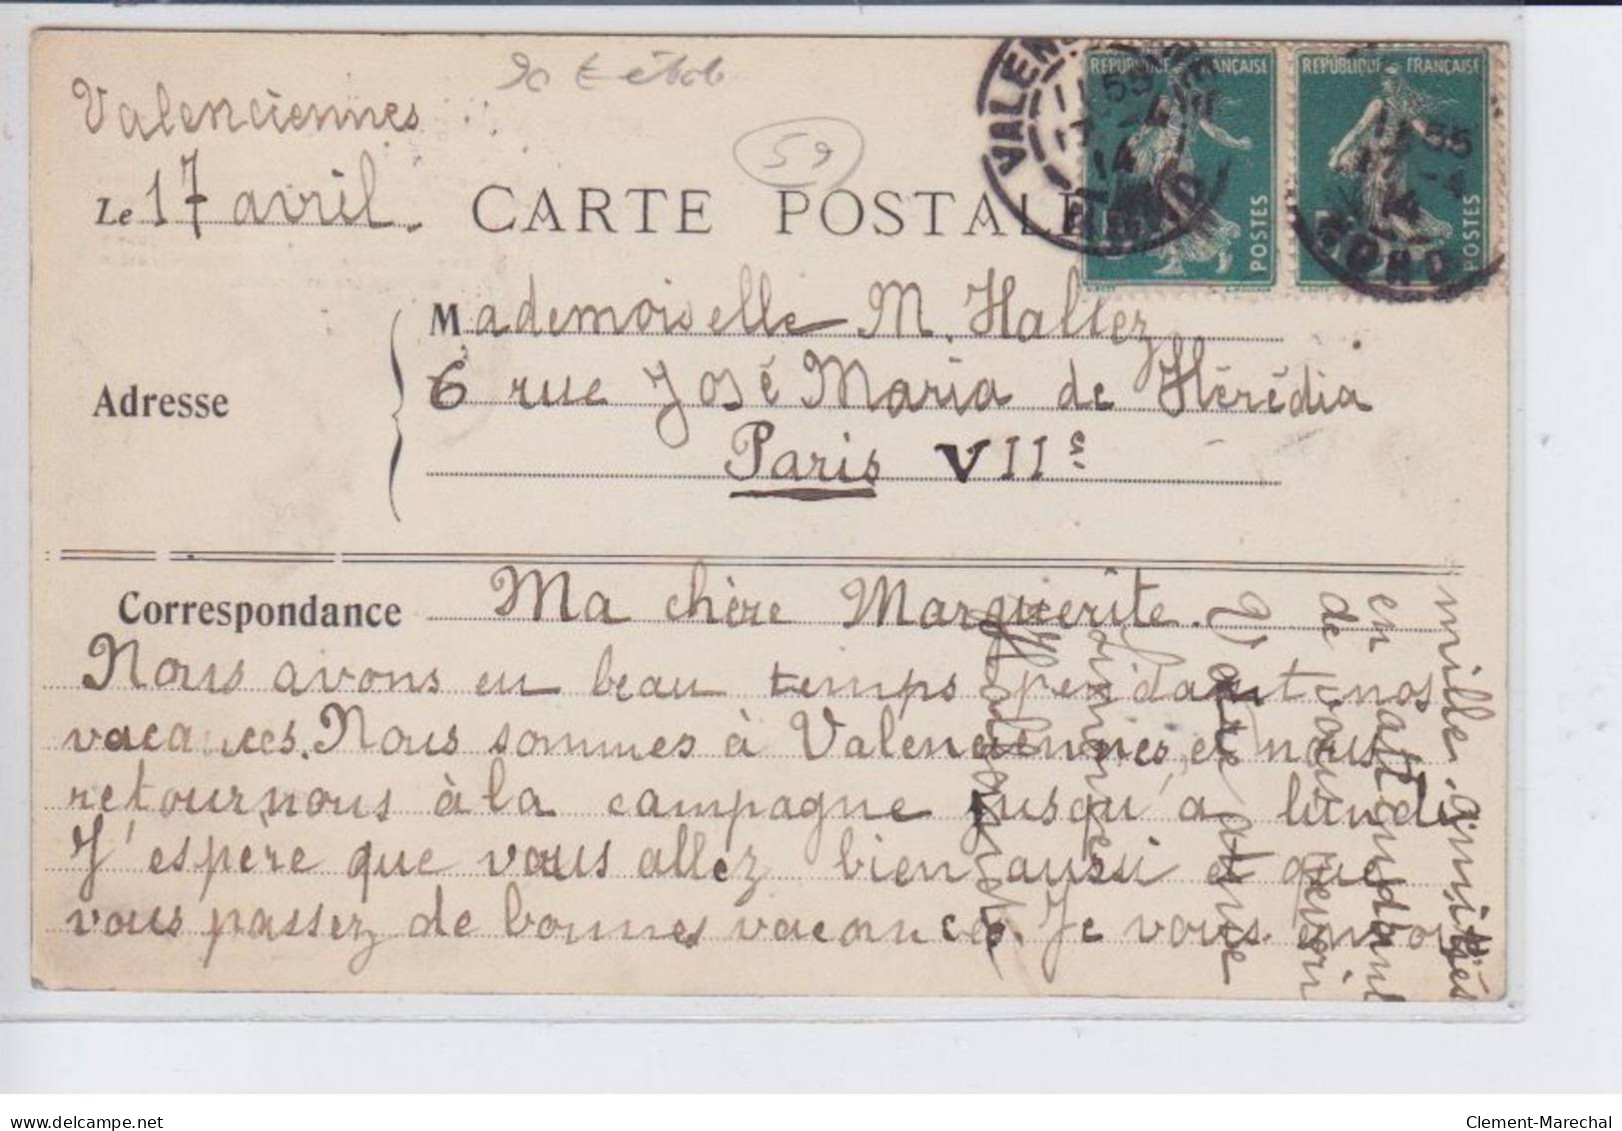 Valenciennes
Le 17 avril.
59
CARTE POSTALE
VALEN
11 55
17 -4
14
NORD
RÉPUBLIQUE FRANÇAISE
POSTES
RÉPUBLIQUE FRANÇAISE
POSTES
11 55
17 -4
14
NORD
Adresse
Mademoiselle M. Hallez
6 rue José Maria de Hérédia
Paris VIIe
Correspondance
Ma chère Marguerite.
Nous avons eu beau temps pendant nos
vacances. Nous sommes à Valenciennes et nous
retournons à la campagne jusqu'a lundi.
J'espère que vous allez bien aussi et que
vous passez de bonnes vacances. Je vous envoie
mille amitiés
en attendant
de vous revoir
Votre amie
Marguerite
Clement-Marechal